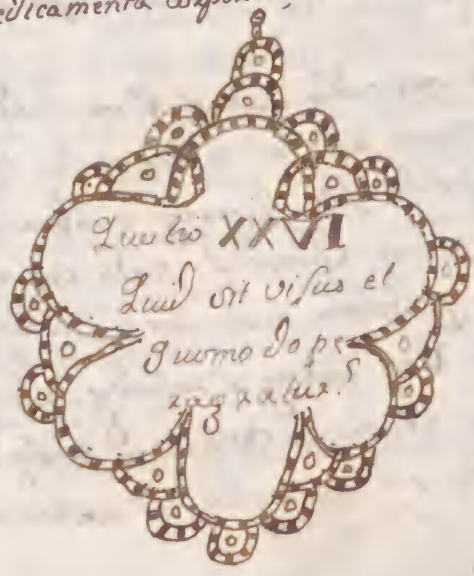 edicamenta
Questio XXVI
Quid sit visus et
quomodo pe
ragratur?